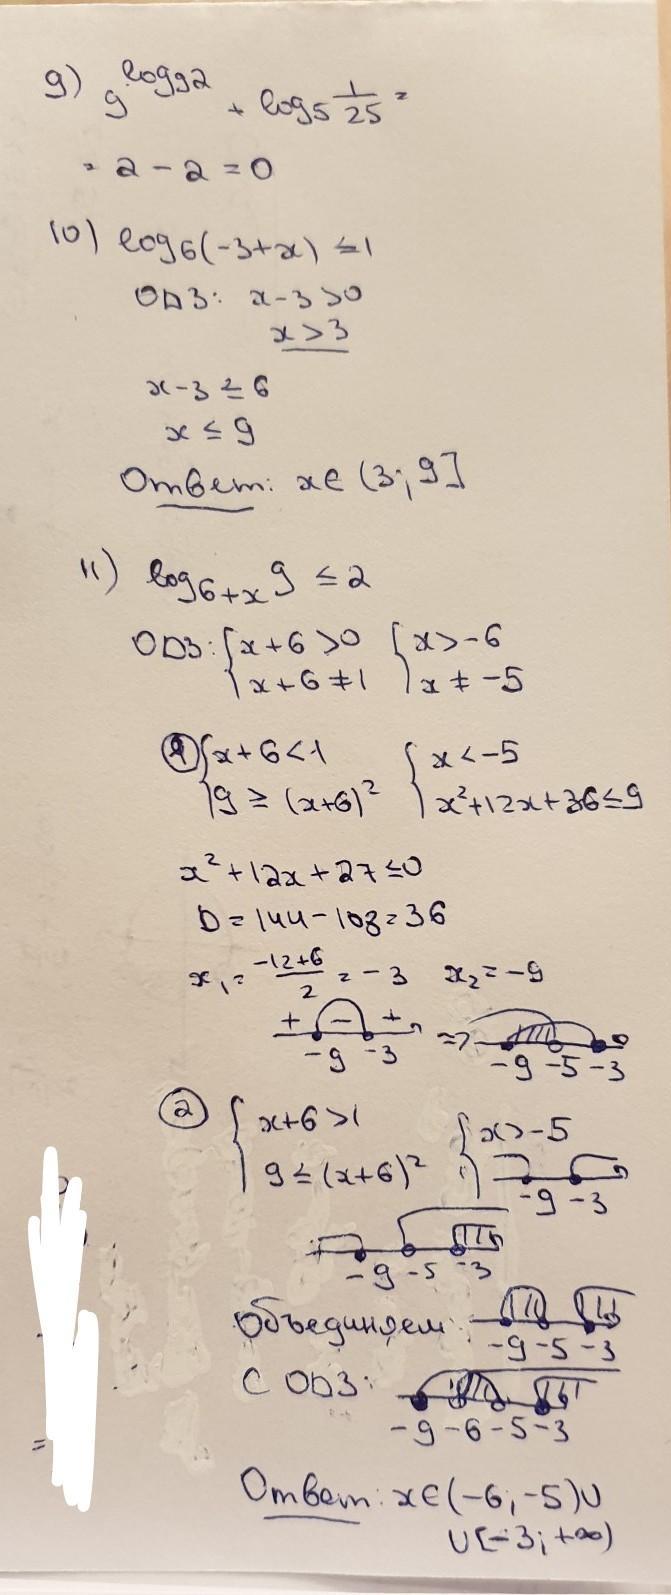 9) 9^log₉2 + log₅ 1/25 =
= 2 - 2 = 0
10) log₆(-3+x) ≤ 1
ОДЗ: x-3 > 0
x > 3
x-3 ≤ 6
x ≤ 9
Ответ: x ∈ (3; 9]
11) log₆₊ₓ 9 ≤ 2
ОДЗ: { x+6 > 0 { x > -6
x+6 ≠ 1 x ≠ -5
① { x+6 < 1 { x < -5
9 ≥ (x+6)² x²+12x+36 ≤ 9
x²+12x+27 ≤ 0
D = 144 - 108 = 36
x₁ = -12+6/2 = -3 x₂ = -9
+ - + =>
-9 -3 -9 -5 -3
② { x+6 > 1 { x > -5
9 ≤ (x+6)² -9 -3
-9 -5 -3
Объединяем:
-9 -5 -3
С ОДЗ:
-9 -6 -5 -3
Ответ: x ∈ (-6; -5) ∪
∪ [-3; +∞)